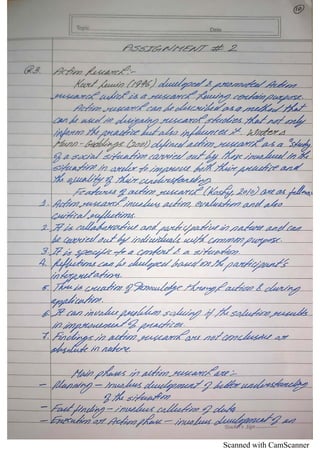 Topic
Date
ASSIGNMENT # 2
Q3. Action Research:-
Kurt Lewin (1946) developed & promoted Action
research which is a research having certain purpose.
Action research can be described as a method that
can be used in designing research studies that not only
inform the practice but also influences it. Winter &
Munn-Giddings (2001) defined action research as a "study
of a social situation carried out by those involved in the
situation in order to improve both their practice and
the quality of their understanding.
Features of action research (Koshy, 2010) are as follows
1. Action research involves action, evaluation and also
critical reflections.
2. It is collaborative and participative in nature and can
be carried out by individuals with common purpose.
3. It is specific to a context & a situation.
4. Reflections can be developed based on the participant's
interpretations.
5. There is creation of knowledge through action & during
application.
6. It can involve problem solving if the solution results
in improvement of practices.
7. Findings in action research are not conclusive or
absolute in nature.
Main phases in action research are:-
- Planning - involves development of better understanding
of the situation
- Fact finding - involves collection of data
- Execution or Action phase - involves development of an
Teacher's Sign
Scanned with CamScanner